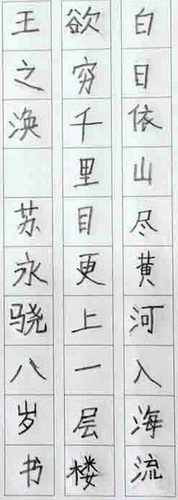 白日依山尽黄河入海流
欲穷千里目更上一层楼
王之涣 苏永骁八岁书